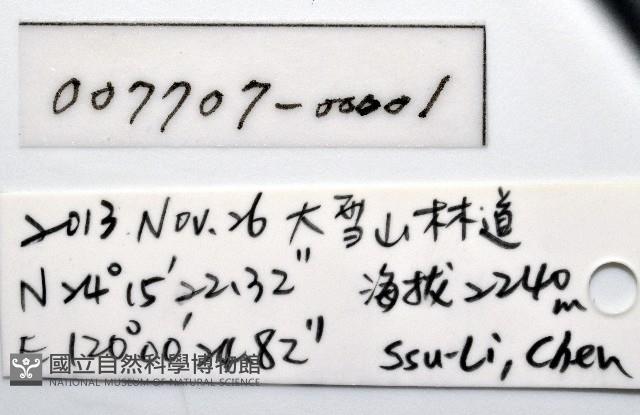 007707-00001
2013 Nov. 26 大雪山林道
N 24° 15' 22.32" 海拔 2240m
E 120° 00' 82" Ssu-Li, Chen
國立自然科學博物館
NATIONAL MUSEUM OF NATURAL SCIENCE